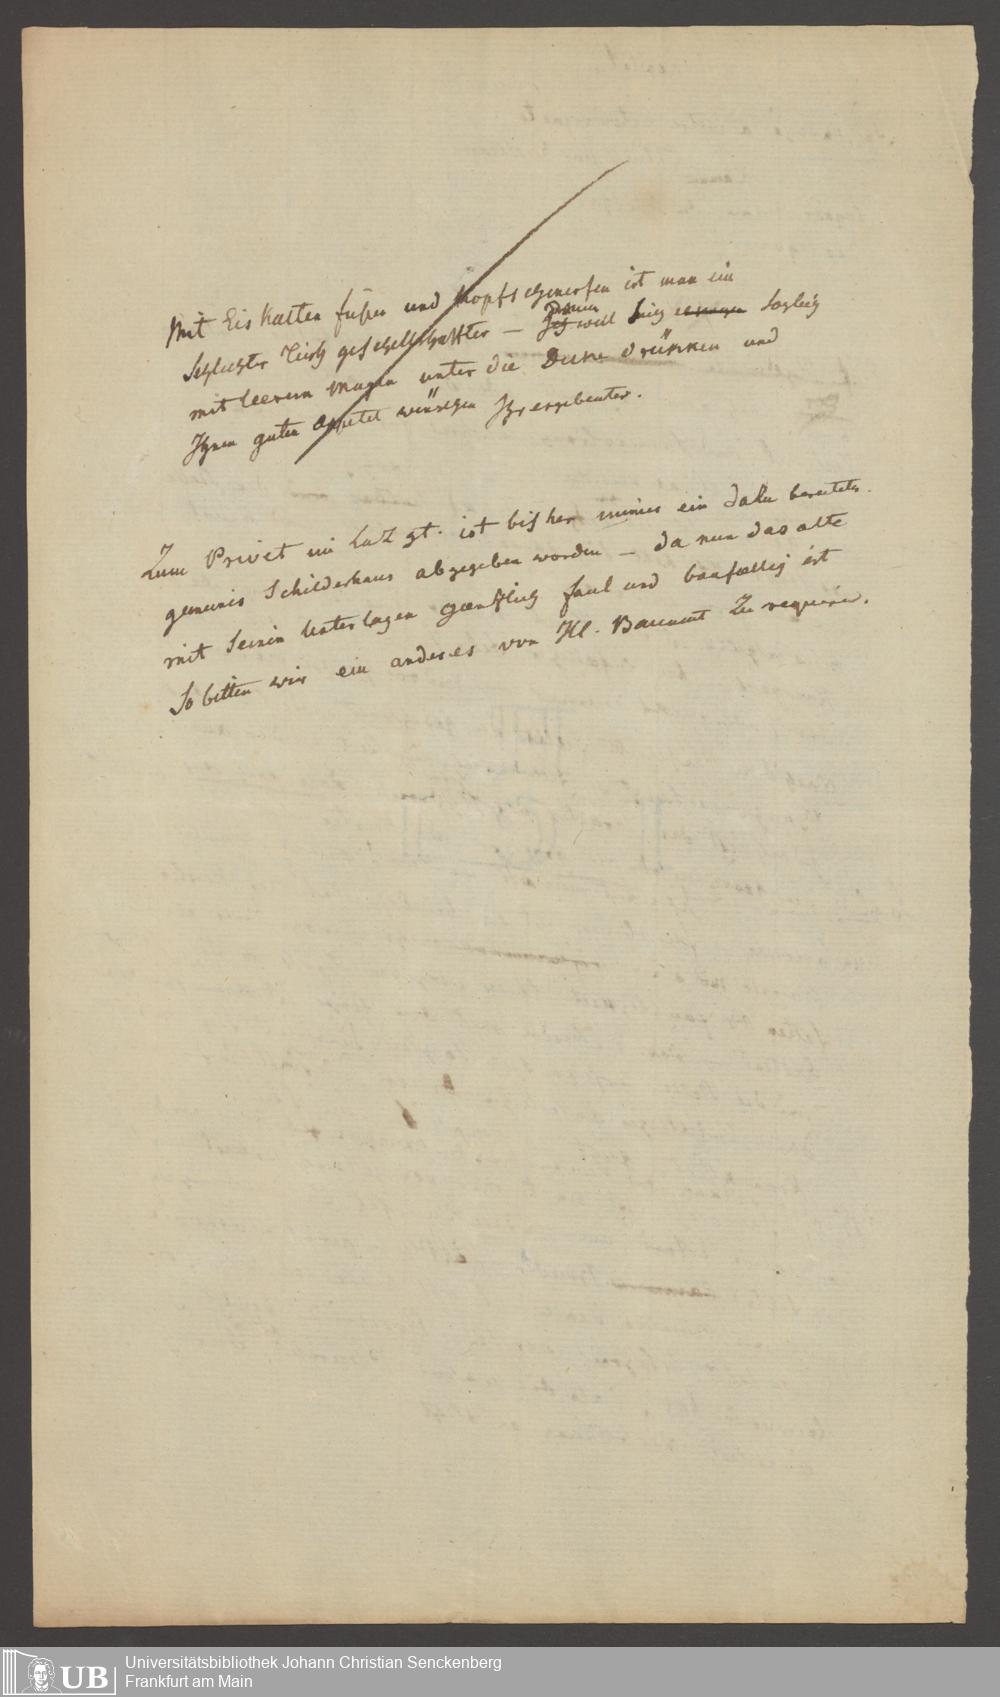 Mit Eis kalten füßen und Kopfschmerzen ist man ein
schlechter Tisch gesellschaffter — Ich Drum will mich sogleich
mit leerem Magen unter die Deke drükken und
Ihnen guten Appetit wünschen Ihr ergebenster.
Zum Privet im Lazgt. ist bisher immer ein dazu bereitetes
gemeines Schilderhaus abgegeben worden — da nun das alte
mit seinen Unterlagen gäntzlich faul und baufällig ist
So bitten wir ein anderes vom Hl. Bauamt zu requirirn.
UB
Universitätsbibliothek Johann Christian Senckenberg
Frankfurt am Main